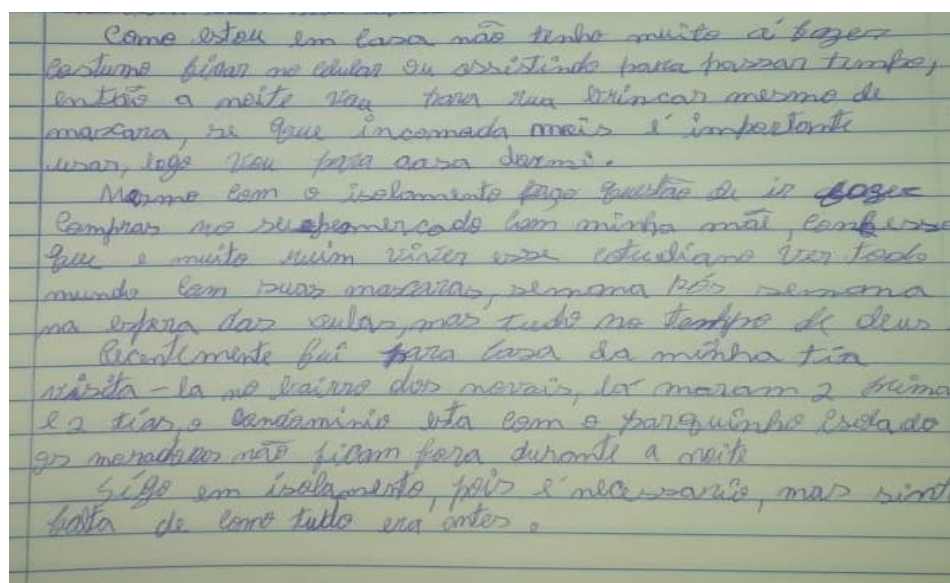 Como estou em casa não tenho muito á fazer
Costumo ficar no celular ou assistindo para passar tempo,
então a noite vou para rua brincar mesmo de
mascara, se que incomoda mais é importante
usar, logo vou para casa dormi.
Mesmo com o isolamento faço questão de ir fazer
Compras no supermercado com minha mãe, confesso
que e muito ruim viver esse cotudiano ver todo
mundo com suas mascaras, semana pós semana
na espera das aulas, mas tudo no tempo de deus
Recentemente fui para casa da minha tia
visita-la no bairro dos novais, lá moram 2 primo
e 2 tias, o condominio esta com o parquinho isolado
os moradores não ficam fora durante a noite
Sigo em isolamento, pois é necessario, mas sint
falta de como tudo era antes.